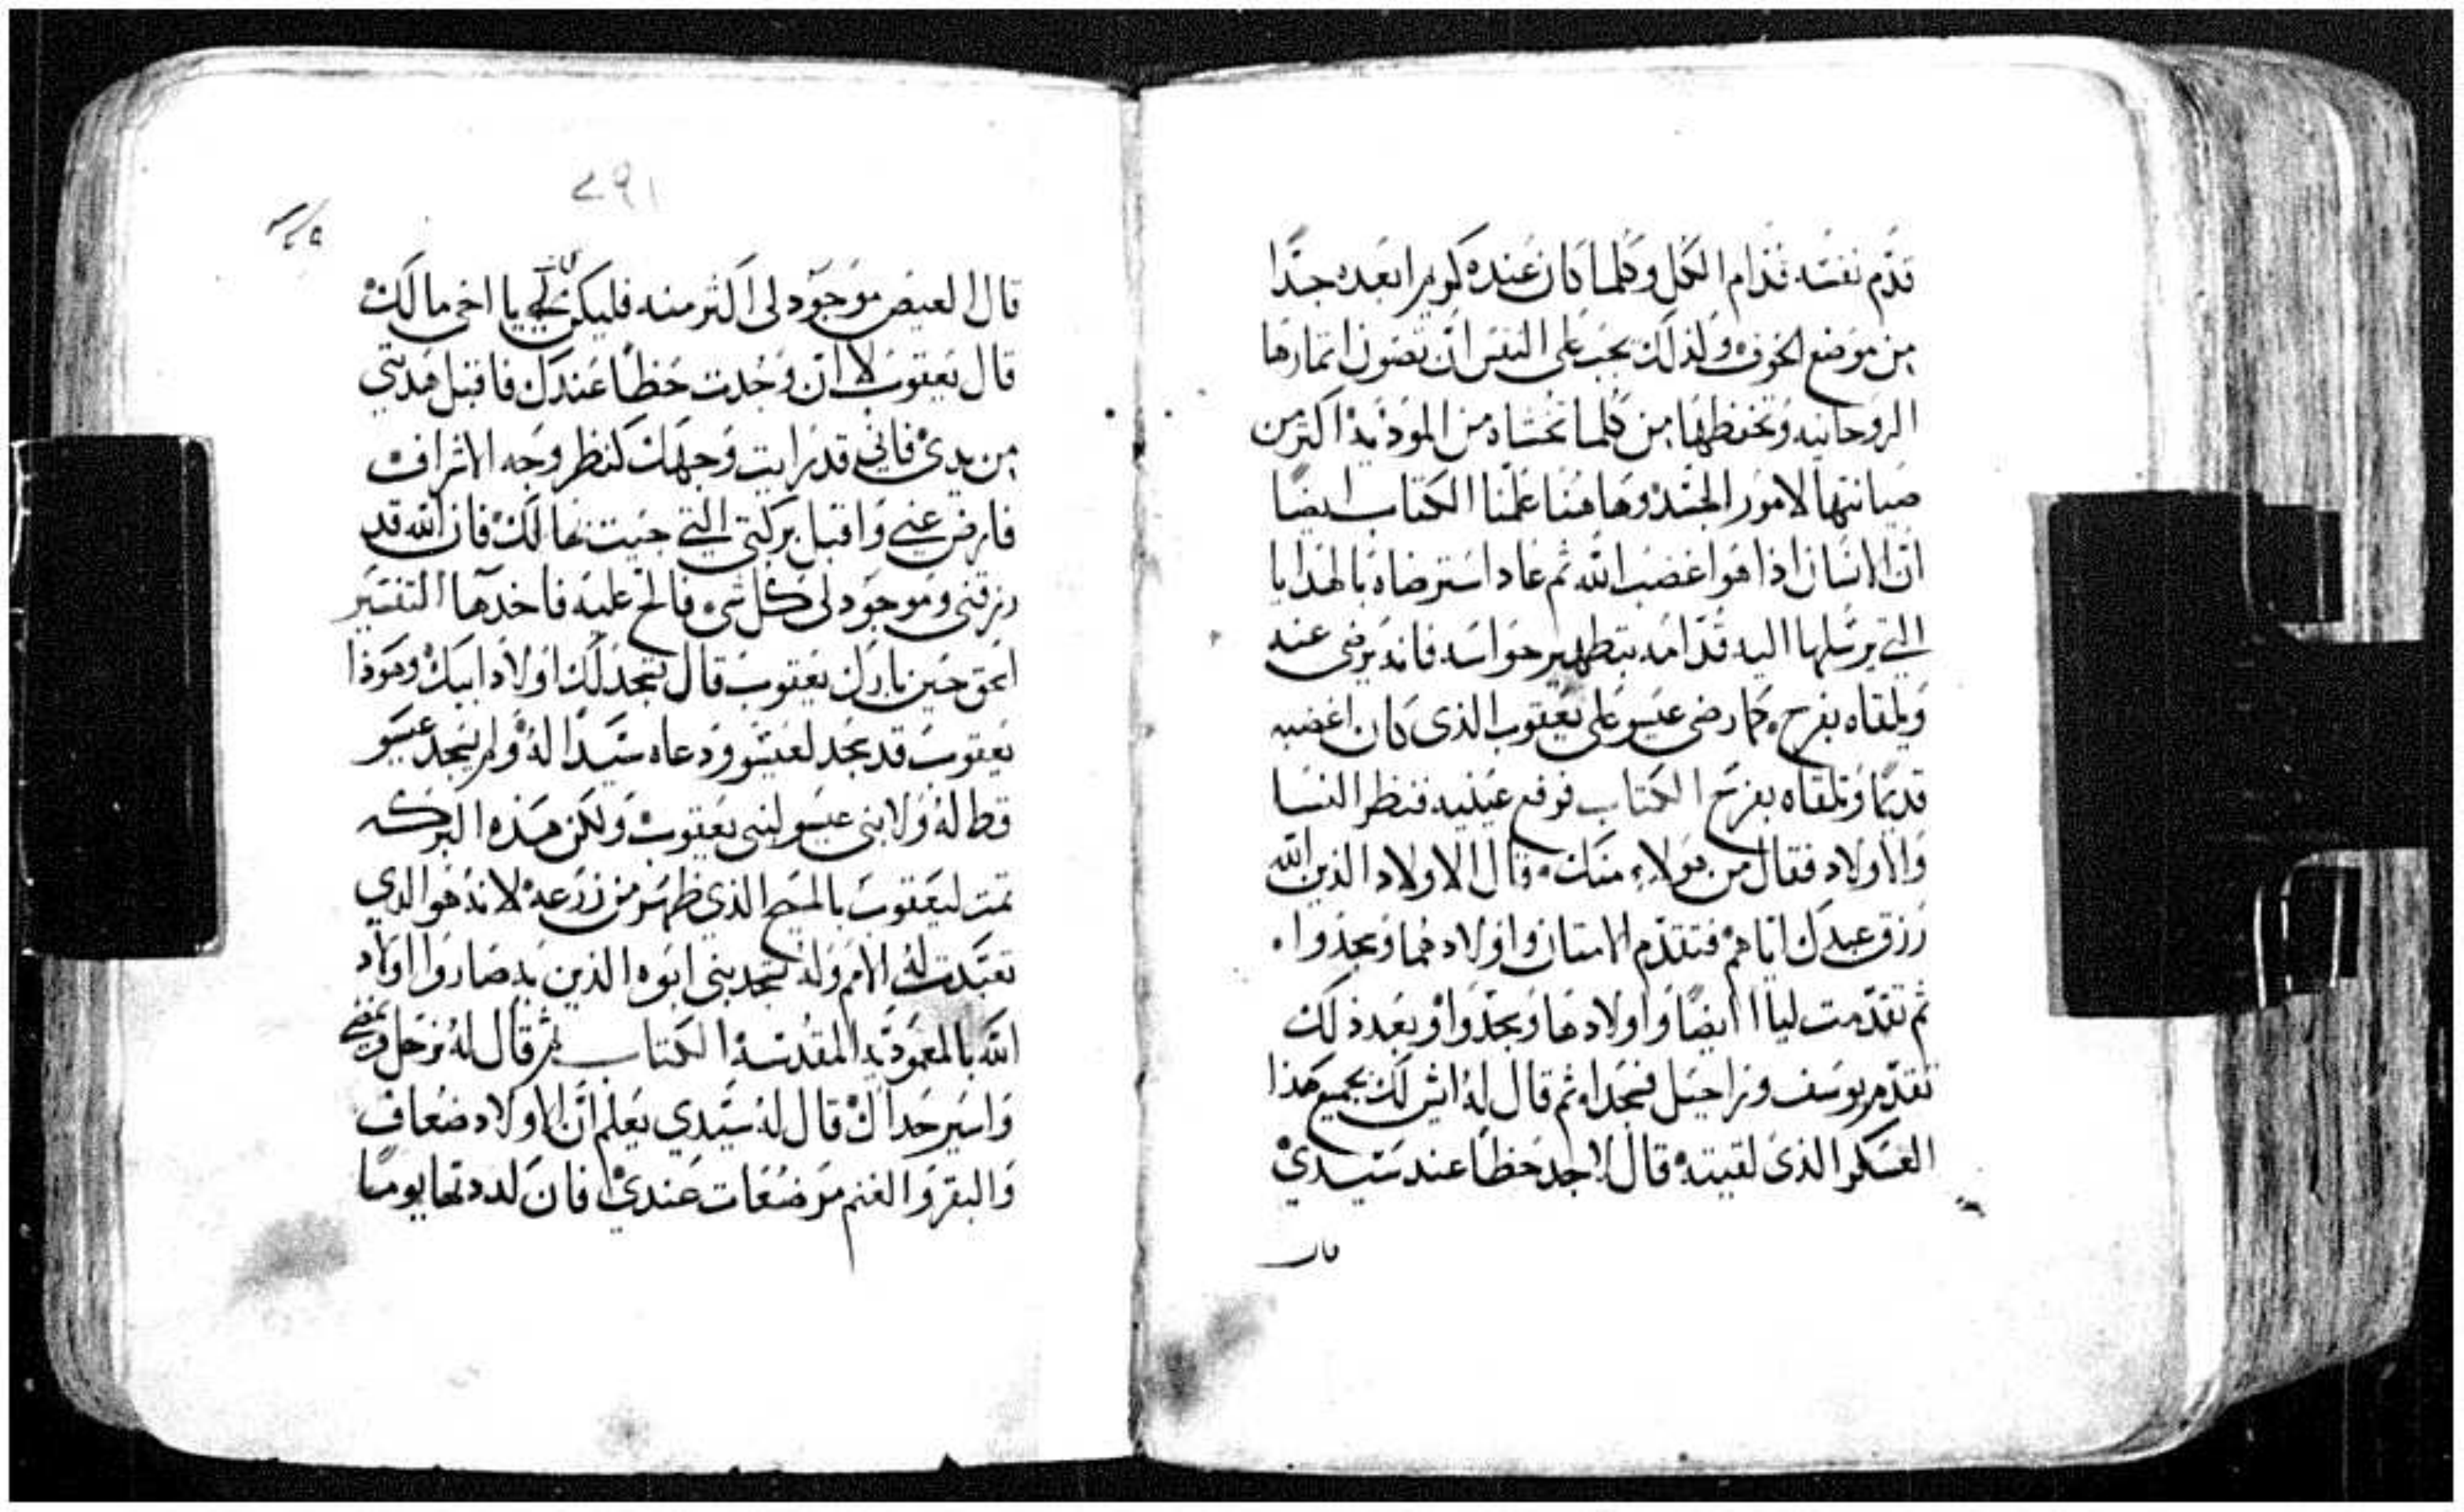 قدّم نفسه قدام الكل وكلما كان عنده كريم ابعده جدًا
من موضع الخوف ولذلك يجب على النفس ان تصون اثمارها
الروحانيه وتحفظها من كلما تخشاه من الموذيه اكثر من
صيانتها لامور الجسد وهاهنا علمنا الكتاب ايضًا
انّ الانسان اذا هو اغضب الله ثم عاد استرضاه بالهدايا
التي يرسلها اليه قدّامه بتطهير حواسه فانه يرضى عنه
ويلقاه بفرح كما رضى عيسو على يعقوب الذى كان اغضبه
قديمًا وتلقاه بفرح الكتاب فرفع عينيه فنظر النسا
والاولاد فقال من هولاء منك قال الاولاد الذين الله
رزق عبدك اياهم فتقدّم الامتان واولادهما وسجدوا
ثم تقدّمت ليا ايضًا واولادها وسجدوا وبعد ذلك
تقدّم يوسف وراحيل فسجدا ثم قال له ايش لك بجميع هذا
العسكر الذى لقيته قال لاجد حظًا عند سيدي
قال
٢٩١
قال العيص موجود لى اكثر منه فليكن لك يا اخى مالك
قال يعقوب لا ان وجدت حظًا عندك فاقبل هديتي
من يدى فاني قد رايت وجهك كنظر وجه الاشراف
فارض عني واقبل بركتي التي جيت بها لك فان الله قد
رزقنى وموجود لى كل شى فالح عليه فاخدها التفسير
اسحق حين بارك يعقوب قال تسجد لك اولاد ابيك وهوذا
يعقوب قد سجد لعيسو ودعاه سيدًا له ولم يسجد عيسو
قط له ولا بنى عيسو لبنى يعقوب ولكن هذه البركه
تمت ليعقوب بالمسيح الذي ظهر من زرعه لانه هو الدي
تعبّدت له الامم وله تسجد بنى ابوه الذين به صاروا اولاد
الله بالمعموديه المقدسه الكتاب ثم قال له نرحل ونمضي
واسير حداك قال له سيّدي يعلم انّ الاولاد ضعاف
والبقر والغنم مرضعات عندي فان لددتها يومًا